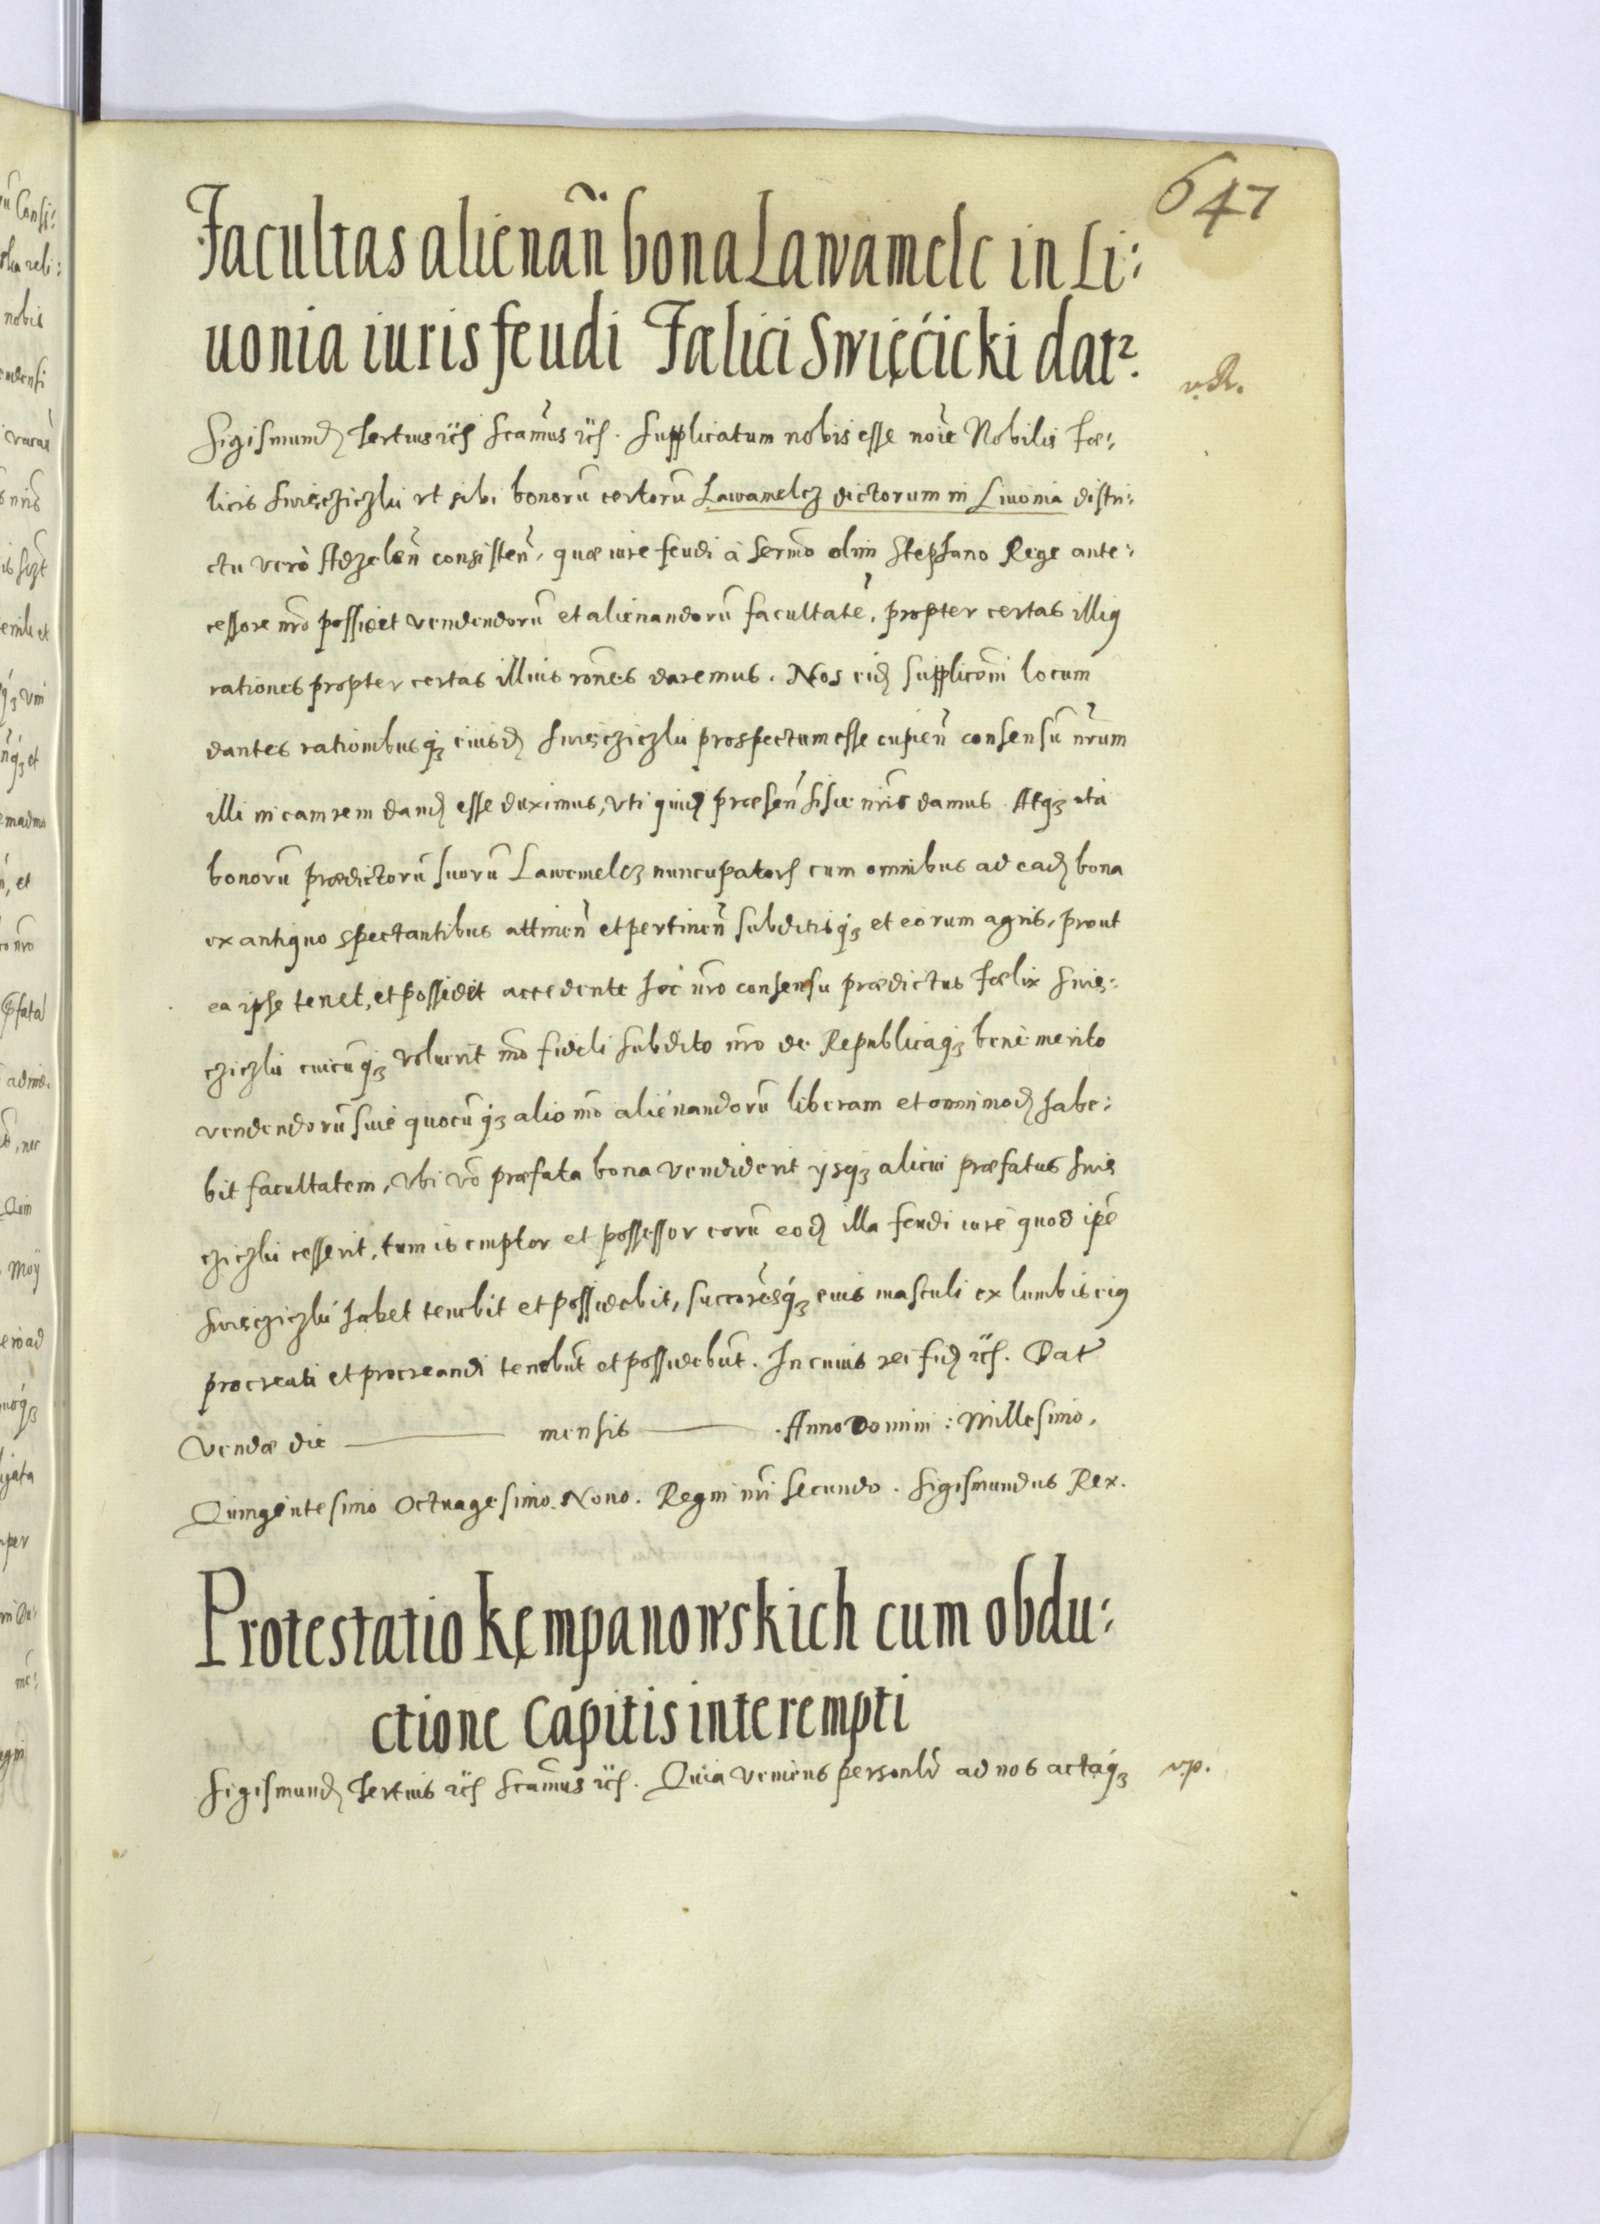 647
Facultas alienan̄ bona Lawamelc in Li:
uonia iuris feudi Fœlici Swięćicki dat?
v. R.
Sigismund9 Tertius etc̃ Scamus etc̃. Supplicatum nobis esse noie Nobilis Fæ:
licis Swiecziczki vt sibi bonorū certorū Lawamelcz dictorum in Liuonia distri:
ctu verò Adzelen̄ consisten̄, quæ iure feudi à Sermo olim Stephano Rege ante:
cessore nro possidet vendendorū et alienandorū facultatē, propter certas illi9
rationes propter certas illius rones daremus. Nos eid suppliconi locum
dantes rationibusq3 eiusd Swiecziczki prospectum esse cupien̄ consensū nrum
illi in eam rem dand esse duximus, vti quid præsen̄ hisce nris damus. Atq3 ita
bonorū prædictorū suorū Lawemelcz nuncupator cum omnibus ad ead bona
ex antiquo spectantibus attinen̄ et pertinen̄ subditisq3 et eorum agris, prout
ea ipse tenet, et possidet accedente hoc nro consensu prædictus Fælix Swie:
cziczki cuicūq3 voluerit mo fideli subdito nro de Republicaq3 bene merito
vendendorū siue quocūq3 alio mo alienandorū liberam et omnimod habe:
bit facultatem, Vbi vo præfata bona vendiderit ysq3 alicui præfatus Swie
cziczki cesserit, tum is emptor et possessor eorū eod illa feudi iure quod ipe
Swiecziczki habet tenebit et possidebit, succoresq3 euis masculi ex lumbis ei9
procreati et procreandi tenebūt et possidebūt. In cuius rei fid etc̃. Dat
Vendæ die ——— mensis ——— . Anno Domini : Millesimo,
Quingentesimo Octuagesimo. Nono. Regni nri Secundo. Sigismundus Rex.
Protestatio Kęmpanowskich cum obdu:
ctione Capitis interempti
Sigismund9 Tertius etc̃ Scamus etc̃. Quia veniens personlr ad nos actaq3
v. p.